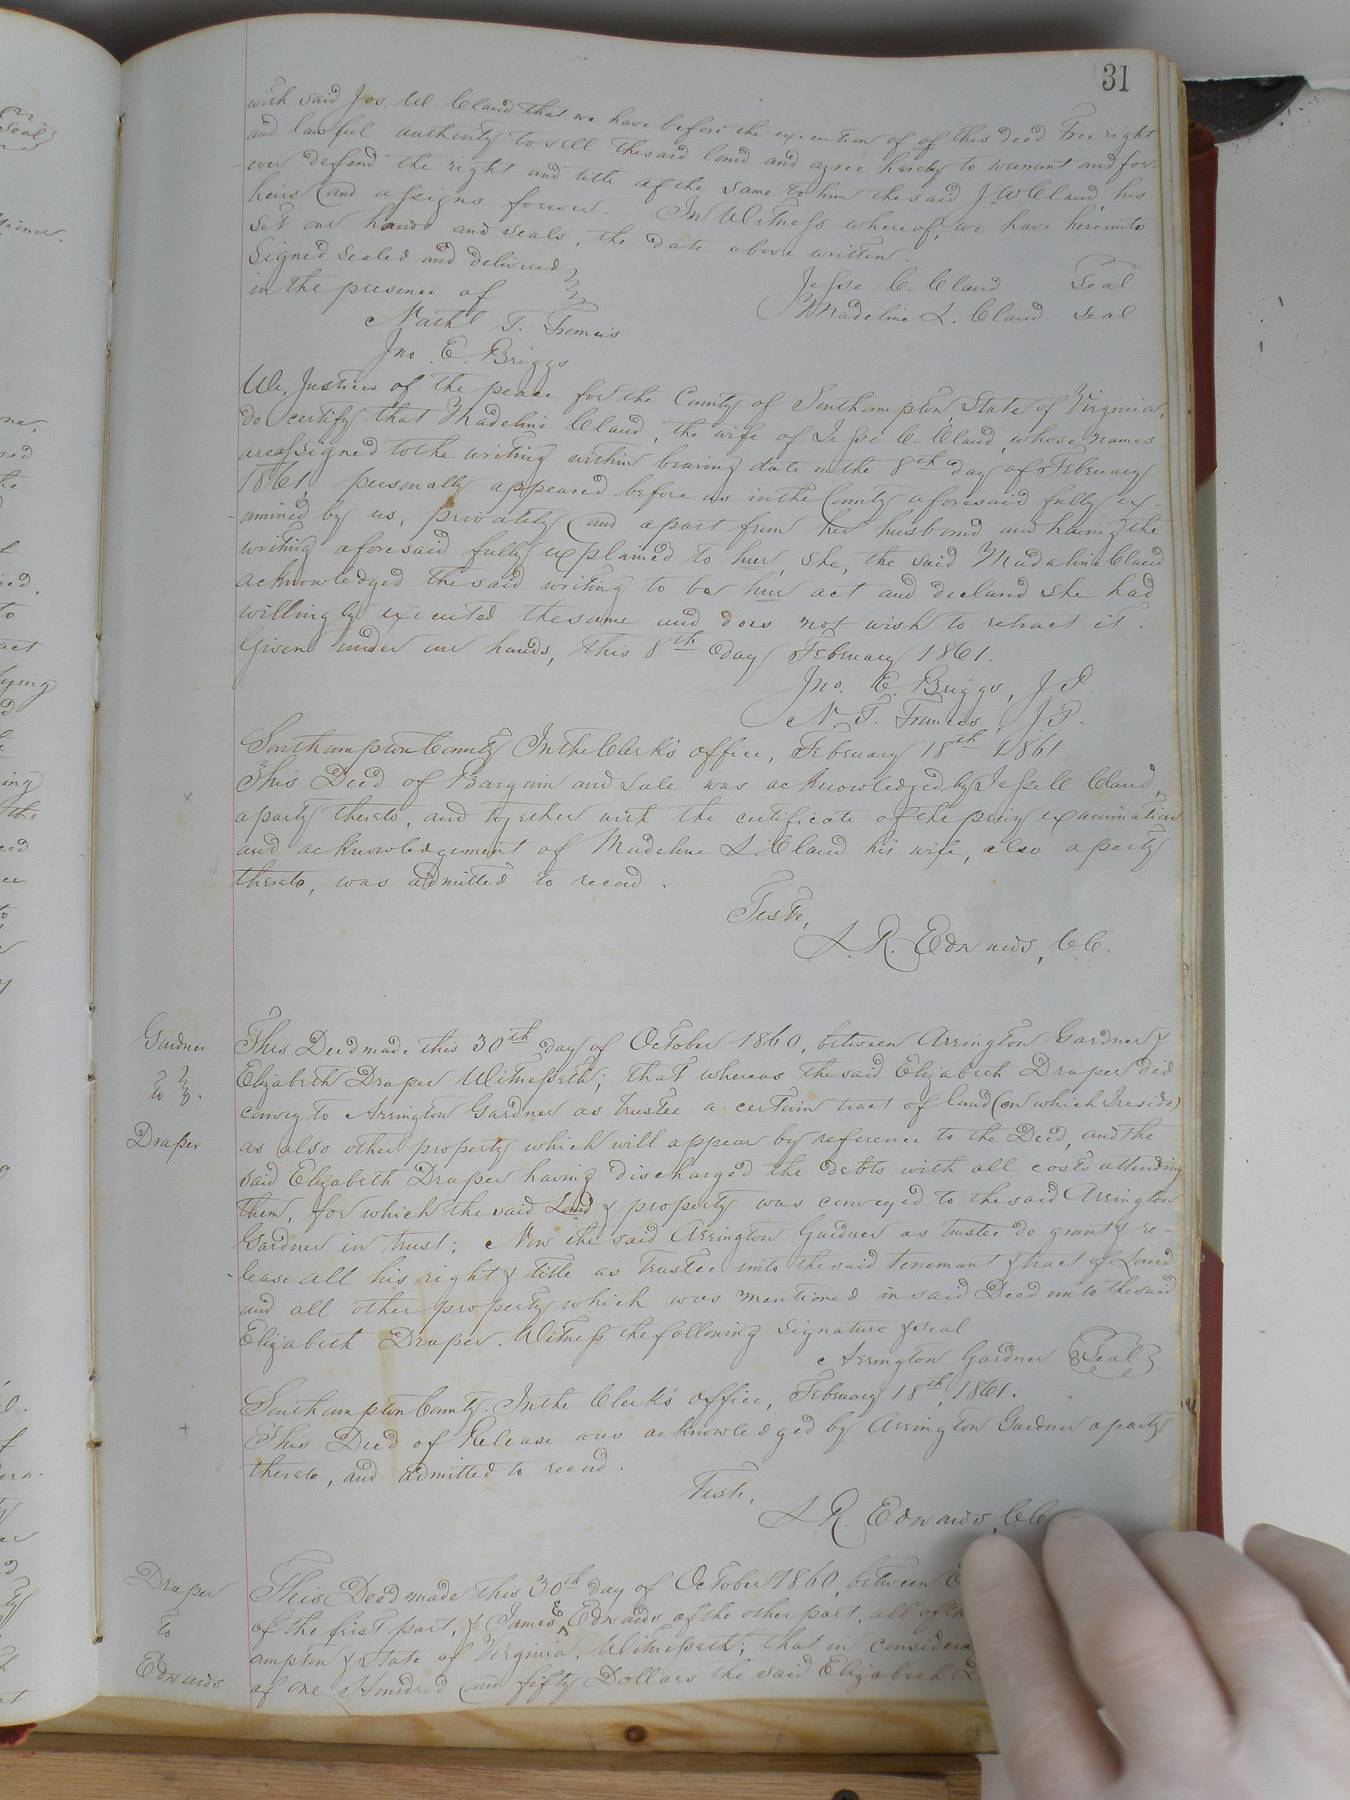 31
with said Jos. W. Claud that we have before the execution of of this deed Free right
and lawful authority to sell the said land and agree hereby to warrant and for-
ever defend the right and title of the same to him the said J. W Claud, his
heirs and assigns forever. In Witness whereof, we have hereunto
set our hands and seals, the date above written.
Signed Sealed and delivered
in the presence of
Jesse C. Claud Seal
Madeline L. Claud Seal
Nathl T. Francis
Jno. E. Briggs
We, Justices of the peace for the County of Southampton State of Virginia,
do certify that Madeline Claud, the wife of Jesse C. Claud, whose names
are assigned to the writing within bearing date on the 8th day of February
1861, personally appeared before us in the County aforesaid fully ex-
amined by us, privately and apart from her husband and having the
writing aforesaid fully explained to her, she, the said Madaline Claud
acknowledged the said writing to be her act and declared she had
willingly executed the same and does not wish to retract it.
Given under our hands, this 8th day February 1861.
Jno. E. Briggs, J. P.
N. T. Francis, J. P.
Southampton County In the Clerk's office, February 18th 1861
This Deed of Bargain and sale was acknowledged by Jesse C Claud,
a party thereto, and together with the certificate of the privy examination
and acknowledgement of Madeline L. Claud his wife, also a party
thereto, was admitted to record.
Teste,
L. R. Edwards, C.C.
Gardner
to
Draper
This Deed made this 30th day of October 1860, between Arrington Gardner &
Elizabeth Draper Witnesseth; that whereas the said Elizabeth Draper did
convey to Arrington Gardner as trustee a certain tract of land (on which I reside)
as also other property which will appear by reference to the Deed, and the
said Elizabeth Draper having discharged the debts with all costs attending
them, for which the said Land & property was conveyed to the said Arrington
Gardner in trust; Now the said Arrington Gardner as trustee do grant & re-
lease all his right & title as trustee unto the said tenemant & tract of Land
and all other property which was mentioned in said Deed unto the said
Elizabeth Draper. Witness the following Signature & seal
Arrington Gardner Seal
Southampton County. In the Clerk's office, February 18th, 1861.
This Deed of Release was acknowledged by Arrington Gardner a party
thereto, and admitted to record.
Teste,
L R. Edwards, C.C
Draper
to
Edwards
This Deed made this 30th day of October 1860, between
of the first part, & James E Edwards of the other part, all of the
ampton & State of Virginia, Witnesseth; that in considera
of one Hundred and fifty Dollars the said Elizabeth D